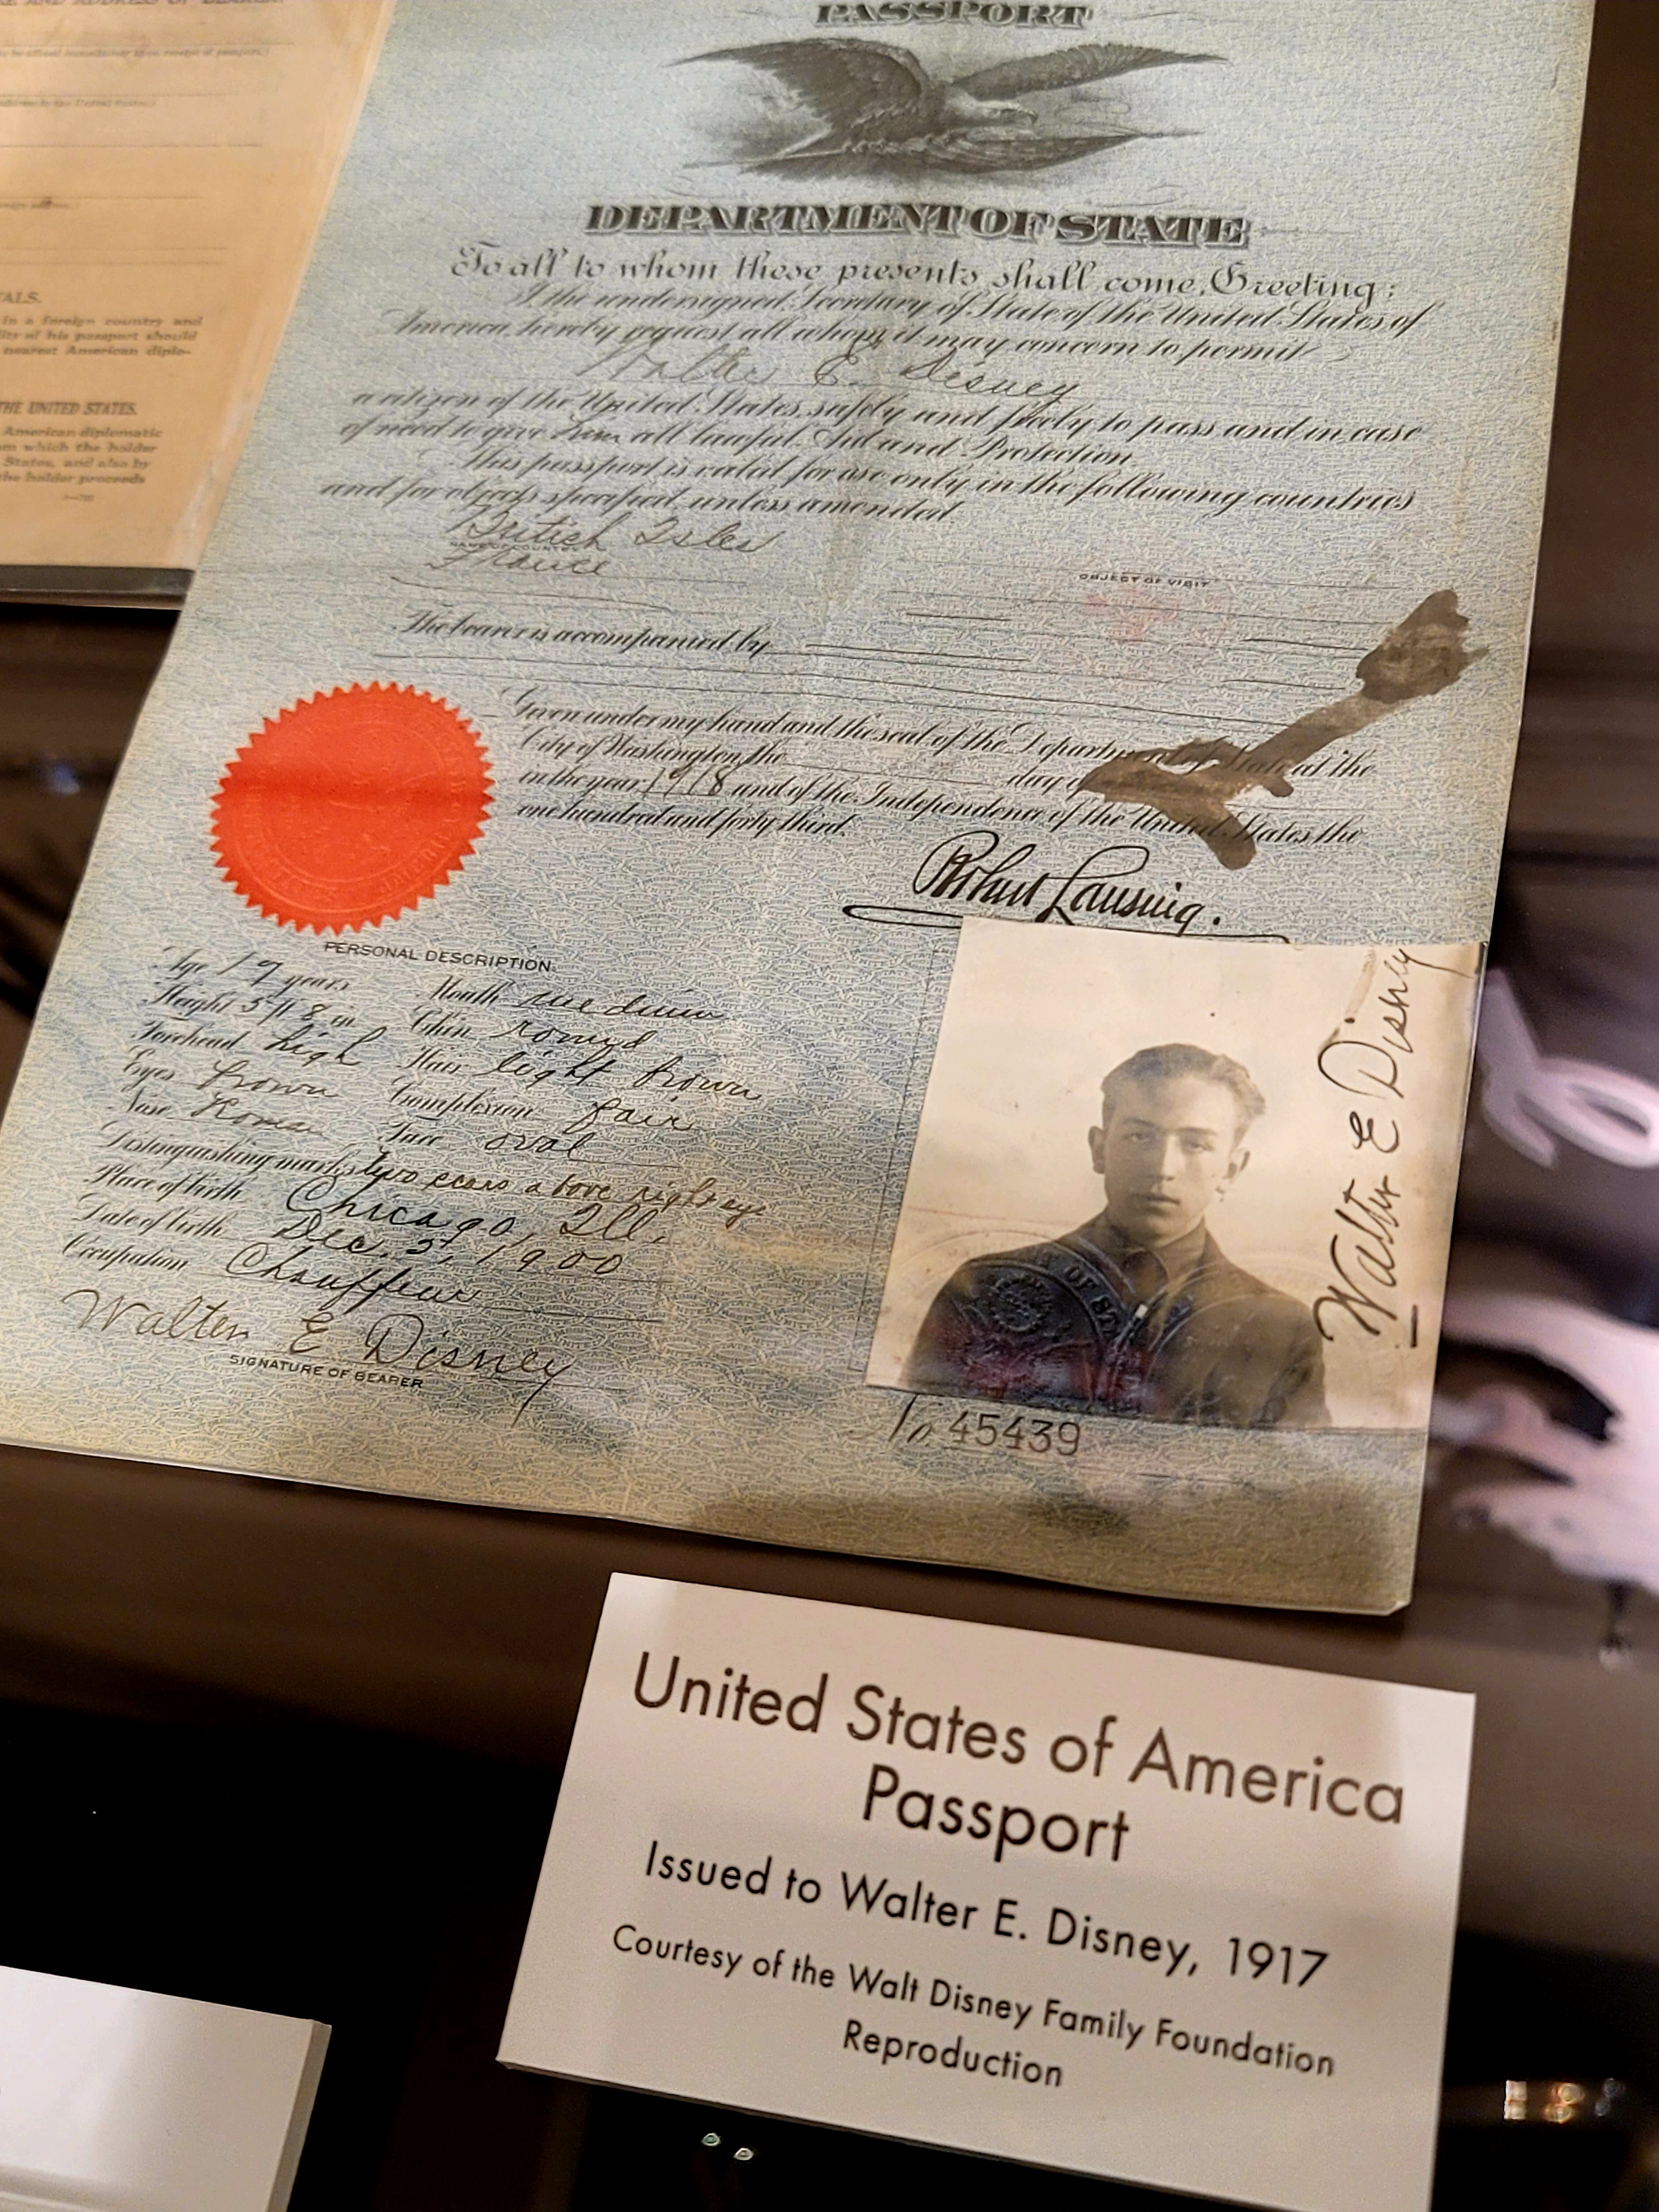 PASSPORT
DEPARTMENT OF STATE
To all to whom these presents shall come, Greeting:
I the undersigned, Secretary of State of the United States of
America, hereby request all whom it may concern to permit
Walter E. Disney
a citizen of the United States, safely and freely to pass and in case
of need to give him all lawful Aid and Protection.
This passport is valid for use only in the following countries
and for objects specified, unless amended.
British Isles
NAME OF COUNTRY
France
OBJECT OF VISIT
The bearer is accompanied by
Given under my hand and the seal of the Department of State at the
City of Washington, the day of
in the year 1918 and of the Independence of the United States the
one hundred and forty third.
Robert Lansing.
PERSONAL DESCRIPTION.
Age 17 years Mouth medium
Height 5 ft 8 in Chin round
Forehead high Hair light brown
Eyes brown Complexion fair
Nose Roman Face oval
Distinguishing marks two scars above right eye
Place of birth Chicago, Ill.
Date of birth Dec. 5, 1900
Occupation Chauffeur
Walter E Disney
SIGNATURE OF BEARER
Walter E Disney
OF ST
No 45439
ADDRESS OF BEARER.
in a foreign country and
of his passport should
nearest American diplo-
THE UNITED STATES.
American diplomatic
which the holder
States, and also by
the holder proceeds
United States of America
Passport
Issued to Walter E. Disney, 1917
Courtesy of the Walt Disney Family Foundation
Reproduction